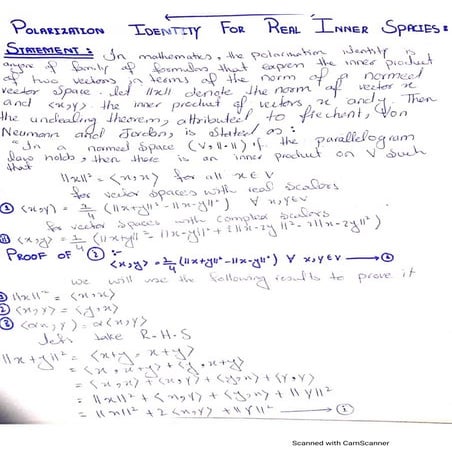 POLARIZATION IDENTITY FOR REAL INNER SPACIES:
STATEMENT: In mathematics, the polarization identity is
any of family of formulas that express the inner product
of two vectors in terms of the norm of a normed
vector space. Let ||x|| denote the norm of vector x
and <x,y> the inner product of vectors x and y. Then
the underling theorem, attributed to frechent, Von
Neumann and Jordon, is stated as:
"In a normed space (V, ||.||) if the parallelogram
law holds, then there is an inner product on V such
that
||x||² = <x,x> for all x ∈ V
for vector spaces with real scalars
① <x,y> = 1/4 (||x+y||² - ||x-y||²) ∀ x,y∈V
for vector spaces with complex scalars
② <x,y> = 1/4 (||x+y||² - ||x-y||² + i||x-iy||² - i||x-iy||²)
PROOF OF ①:-
<x,y> = 1/4 (||x+y||² - ||x-y||²) ∀ x,y∈V
we will use the following results to prove it
① ||x||² = <x,x>
② <x,y> = <y,x>
③ <αx,y> = α<x,y>
let's take R.H.S
||x+y||² = <x+y, x+y>
= <x, x+y> + <y, x+y>
= <x,x> + <x,y> + <y,x> + <y,y>
= ||x||² + <x,y> + <y,x> + ||y||²
= ||x||² + 2<x,y> + ||y||² → ①
Scanned with CamScanner